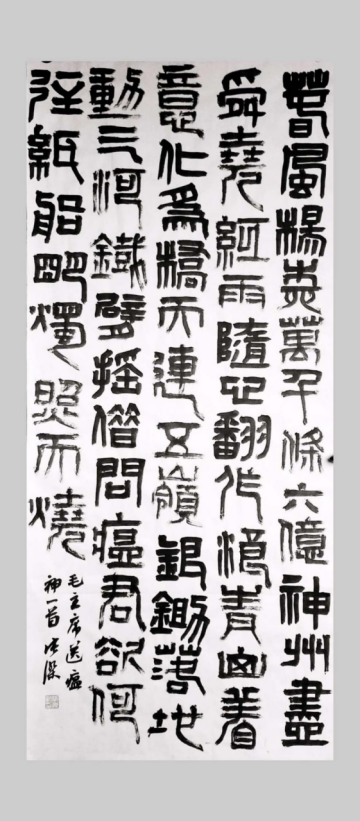 春風楊柳萬千條六億神州盡
舜堯紅雨隨心翻作浪青山着
意化爲橋天連五嶺銀鋤落地
動三河鐵臂搖借問瘟君欲何
往紙船明燭照天燒
毛主席送瘟
神一首